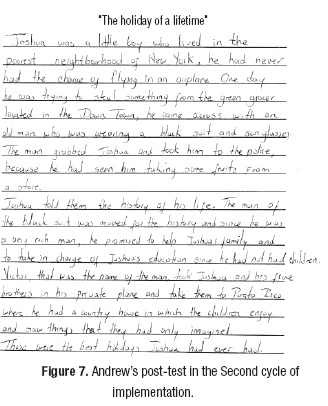 "The holiday of a lifetime"
Joshua was a little boy who lived in the
poorest neighborhood of New York, he had never
had the chance of flying in an airplane One day
he was trying to steal something from the green grocer
located in the Down Town, he came across with an
old man who was wearing a black suit and sunglasses
The man grabbed Joshua and took him to the police,
because he had seen him taking some fruits from
a store.
Joshua told them the history of his life. The man of
the black suit was moved for the history and since he was
a very rich man, he promised to help Joshua's family and
to take in charge of Joshua's education since he had not had children.
Victor that was the name of the man, took Joshua and his five
brothers in his private plane and take them to Puerto Rico
where he had a country house in which the children enjoy
and saw things that they had only imagined.
Those were the best holidays Joshua had ever had.
Figure 7. Andrew's post-test in the Second cycle of
implementation.